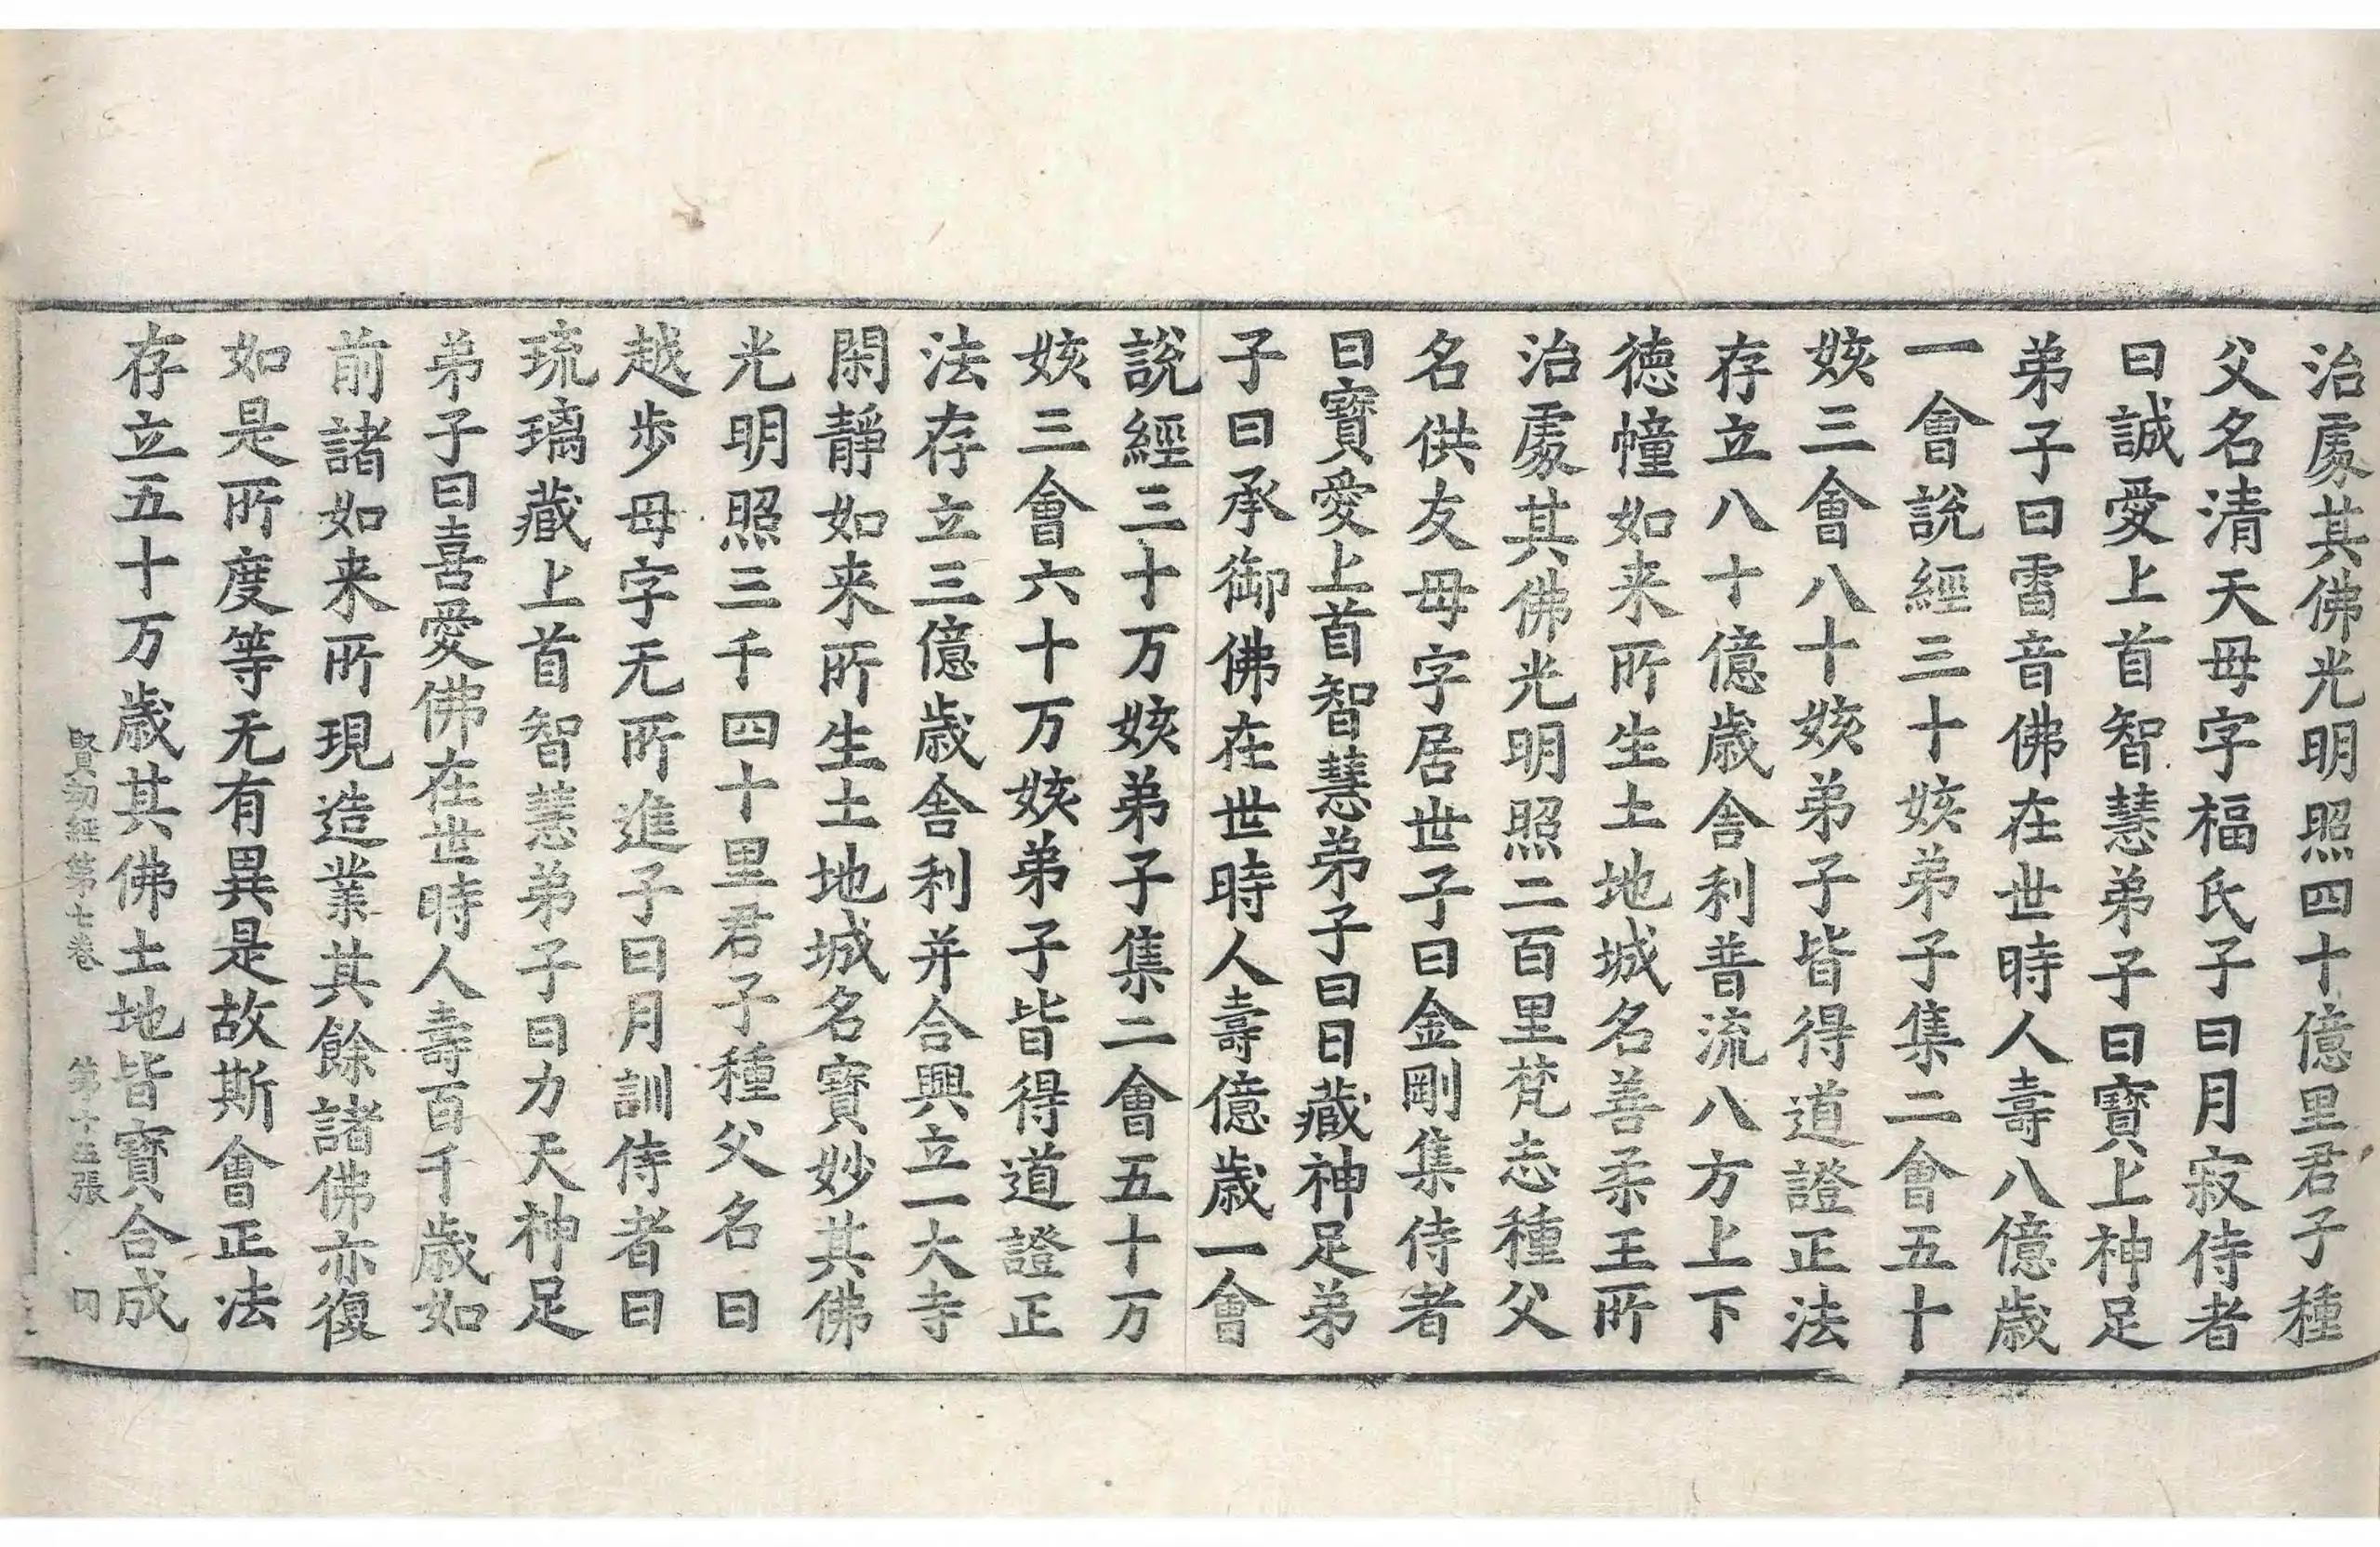 治處其佛光明照四十億里君子種
父名清天母字福氏子曰月寂侍者
曰誠愛上首智慧弟子曰寶上神足
弟子曰雷音佛在世時人壽八億歲
一會說經三十姟弟子集二會五十
姟三會八十姟弟子皆得道證正法
存立八十億歲舎利普流八方上下
德幢如来所生土地城名善柔王所
治處其佛光明照二百里梵志種父
名供友母字居世子曰金剛集侍者
曰寶愛上首智慧弟子曰日藏神足弟
子曰承御佛在世時人壽億歲一會
說經三十万姟弟子集二會五十万
姟三會六十万姟弟子皆得道證正
法存立三億歲舎利并合興立一大寺
閑靜如来所生土地城名寶妙其佛
光明照三千四十里君子種父名曰
越步母字无所進子曰月訓侍者曰
琉璃藏上首智慧弟子曰力天神足
弟子曰喜愛佛在世時人壽百千歲如
前諸如来所現造業其餘諸佛亦復
如是所度等无有異是故斯會正法
存立五十万歲其佛土地皆寶合成
賢劫經第七卷 第十五張